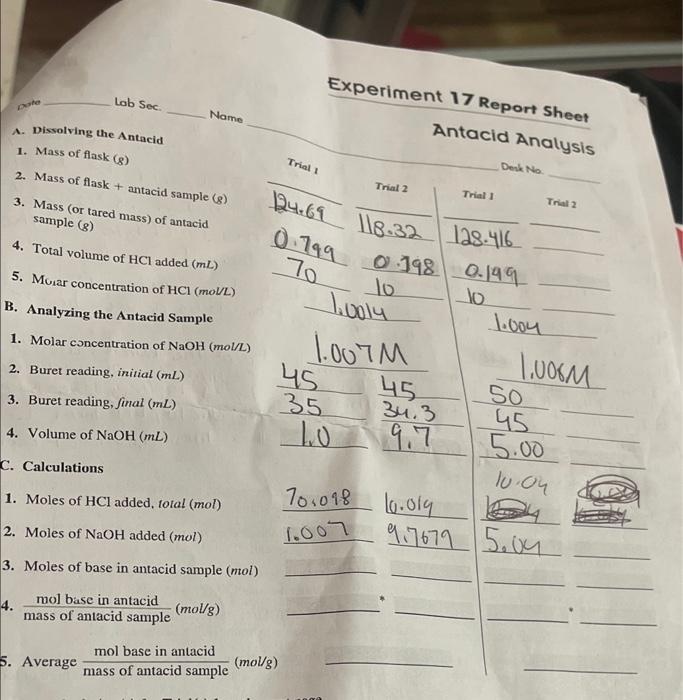 Experiment 17 Report Sheet
Antacid Analysis
Date Lab Sec. Name Desk No.
A. Dissolving the Antacid Trial 1 Trial 2 Trial 1 Trial 2
1. Mass of flask (g)
2. Mass of flask + antacid sample (g) 124.69 118.32 128.416
3. Mass (or tared mass) of antacid
sample (g) 0.799 0.198 0.199
4. Total volume of HCl added (mL) 70 10 10
5. Molar concentration of HCl (mol/L) 1.0014 1.004
B. Analyzing the Antacid Sample
1. Molar concentration of NaOH (mol/L) 1.007M 1.006M
2. Buret reading, initial (mL) 45 45 50
3. Buret reading, final (mL) 35 34.3 45
4. Volume of NaOH (mL) 1.0 9.7 5.00
C. Calculations 10.04
1. Moles of HCl added, total (mol) 70.098 10.019
2. Moles of NaOH added (mol) 1.007 9.7679 5.04
3. Moles of base in antacid sample (mol)
4. mol base in antacid
mass of antacid sample (mol/g)
5. Average mol base in antacid
mass of antacid sample (mol/g)